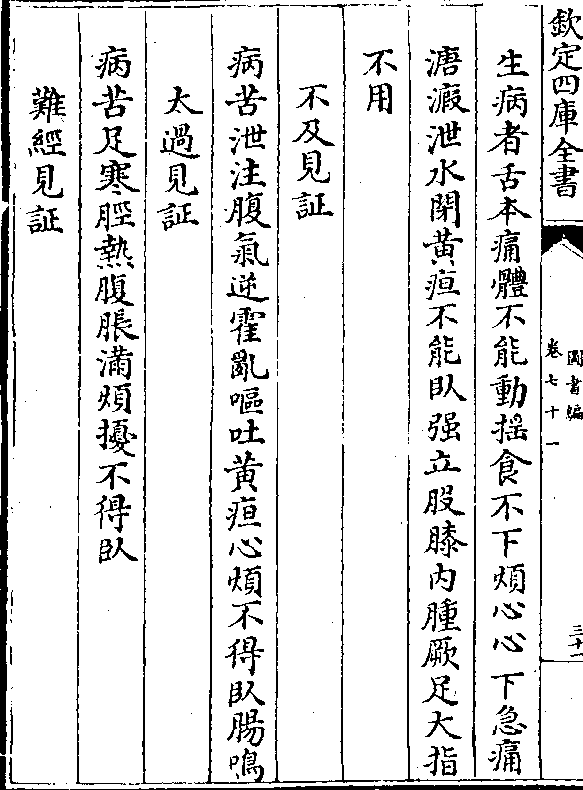 欽定四庫全書
圖書編
卷七十一
三十一
生病者舌本痛體不能動揺食不下煩心心下急痛
溏瘕泄水閉黄疸不能臥强立股膝内腫厥足大指
不用
不及見証
病苦泄注腹氣逆霍亂嘔吐黄疸心煩不得臥腸鳴
太過見証
病苦足寒脛熱腹脹滿煩擾不得臥
難經見証